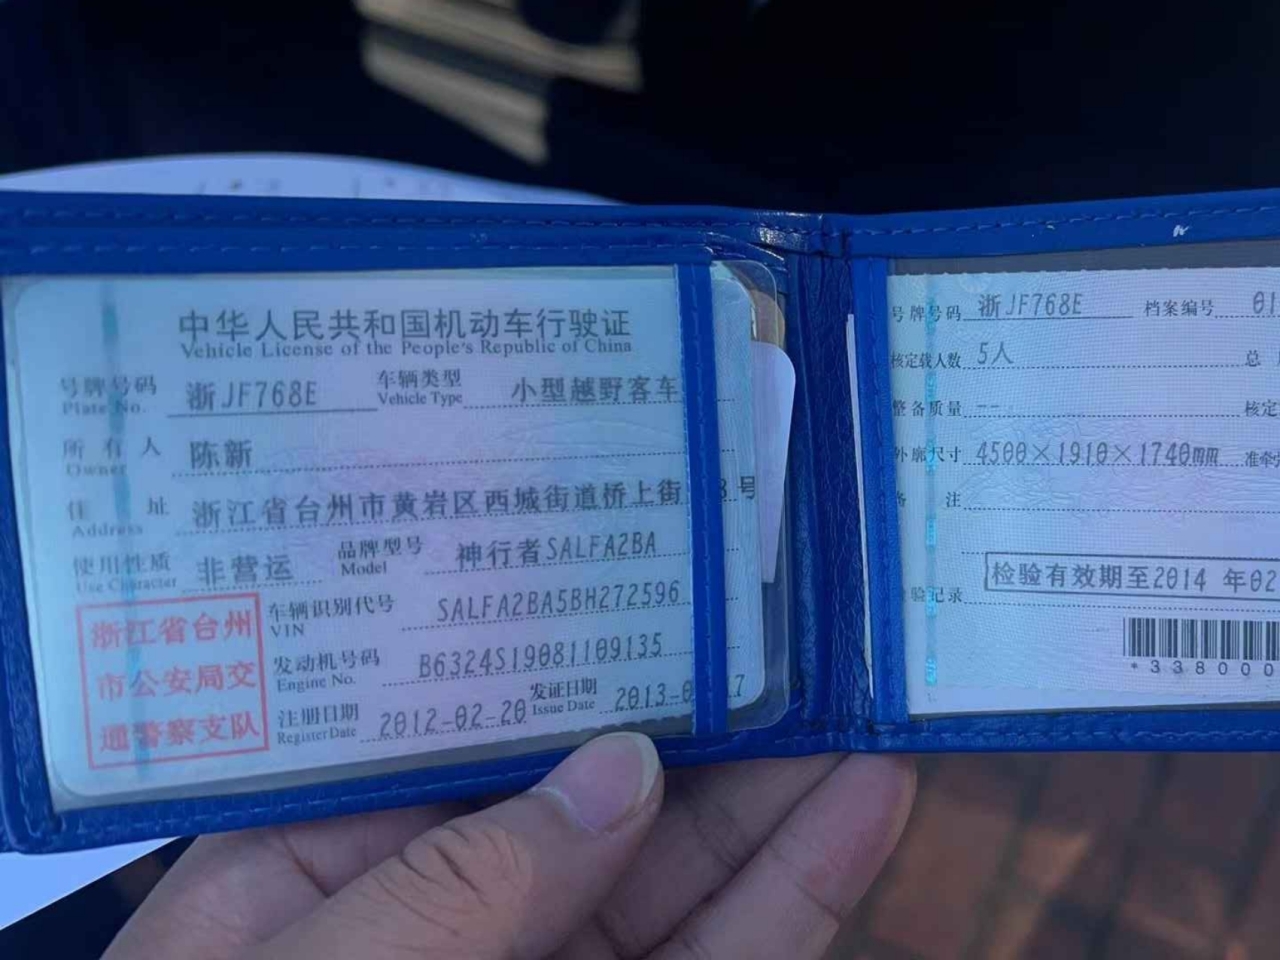 中华人民共和国机动车行驶证
Vehicle License of the People's Republic of China
号牌号码 浙JF768E 车辆类型 小型越野客车
Plate No. Vehicle Type
所有人 陈新
Owner
住址 浙江省台州市黄岩区西城街道桥上街 8号
Address
使用性质 非营运 品牌型号 神行者SALFA2BA
Use Character Model
浙江省台州
市公安局交
通警察支队
车辆识别代号 SALFA2BA5BH272596
VIN
发动机号码 B6324S19081109135
Engine No.
注册日期 2012-02-20 发证日期 2013-0 7
Register Date Issue Date
号牌号码 浙JF768E 档案编号 01
核定载人数 5人 总
整备质量 -- 核定
外廓尺寸 4500×1910×1740mm 准牵
备注
检验记录 检验有效期至2014 年02
*338000